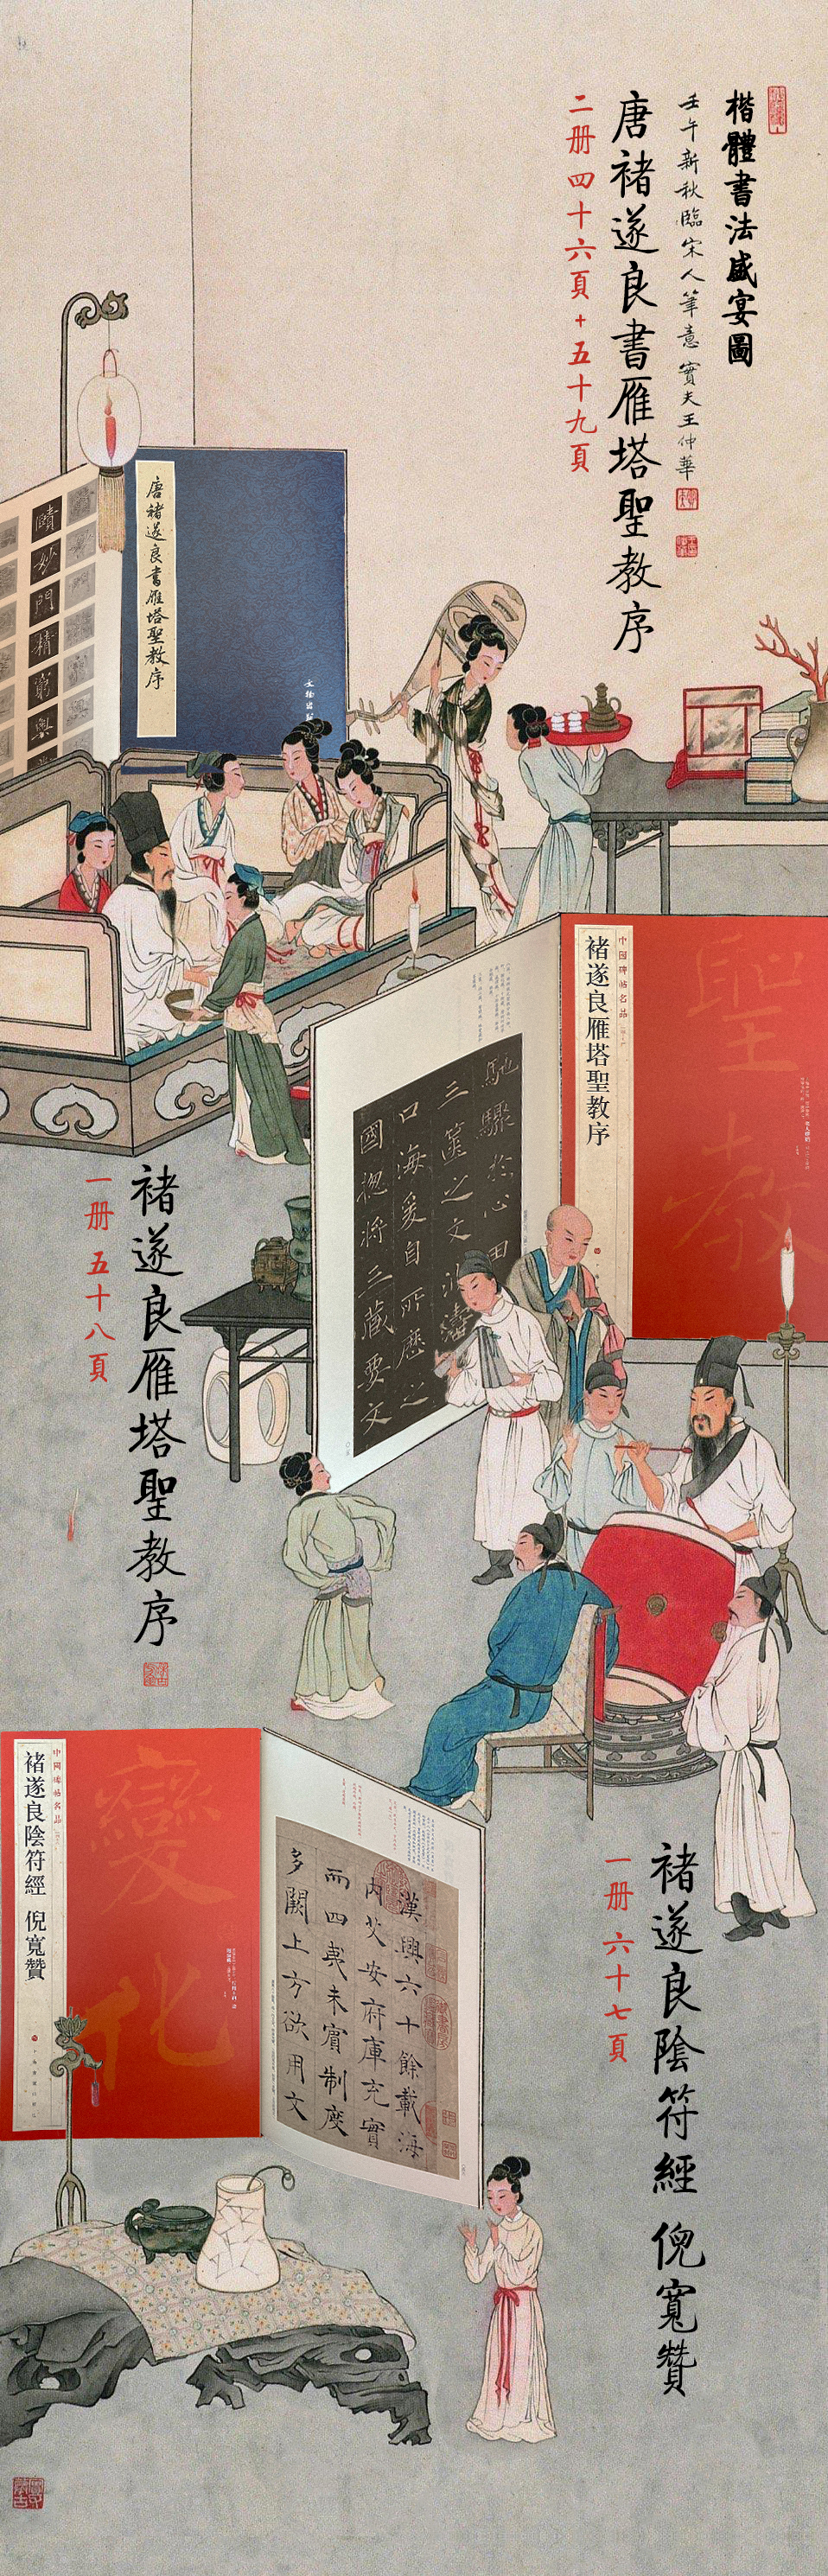 楷體書法盛宴圖
壬午新秋臨宋人筆意 實夫王仲華
唐褚遂良書雁塔聖教序
二册 四十六頁 + 五十九頁
唐褚遂良書雁塔聖教序
賾妙門精窮奧
中国碑帖名品
褚遂良雁塔聖教序
聖教
馳驟於心田
三篋之文波濤
口海爰自所歷之
國揔將三藏要文
褚遂良雁塔聖教序
一册 五十八頁
中国碑帖名品
褚遂良陰符經 倪寬贊
變化
漢興六十餘載海
內艾安府庫充實
而四夷未賓制度
多闕上方欲用文
褚遂良陰符經 倪寬贊
一册 六十七頁